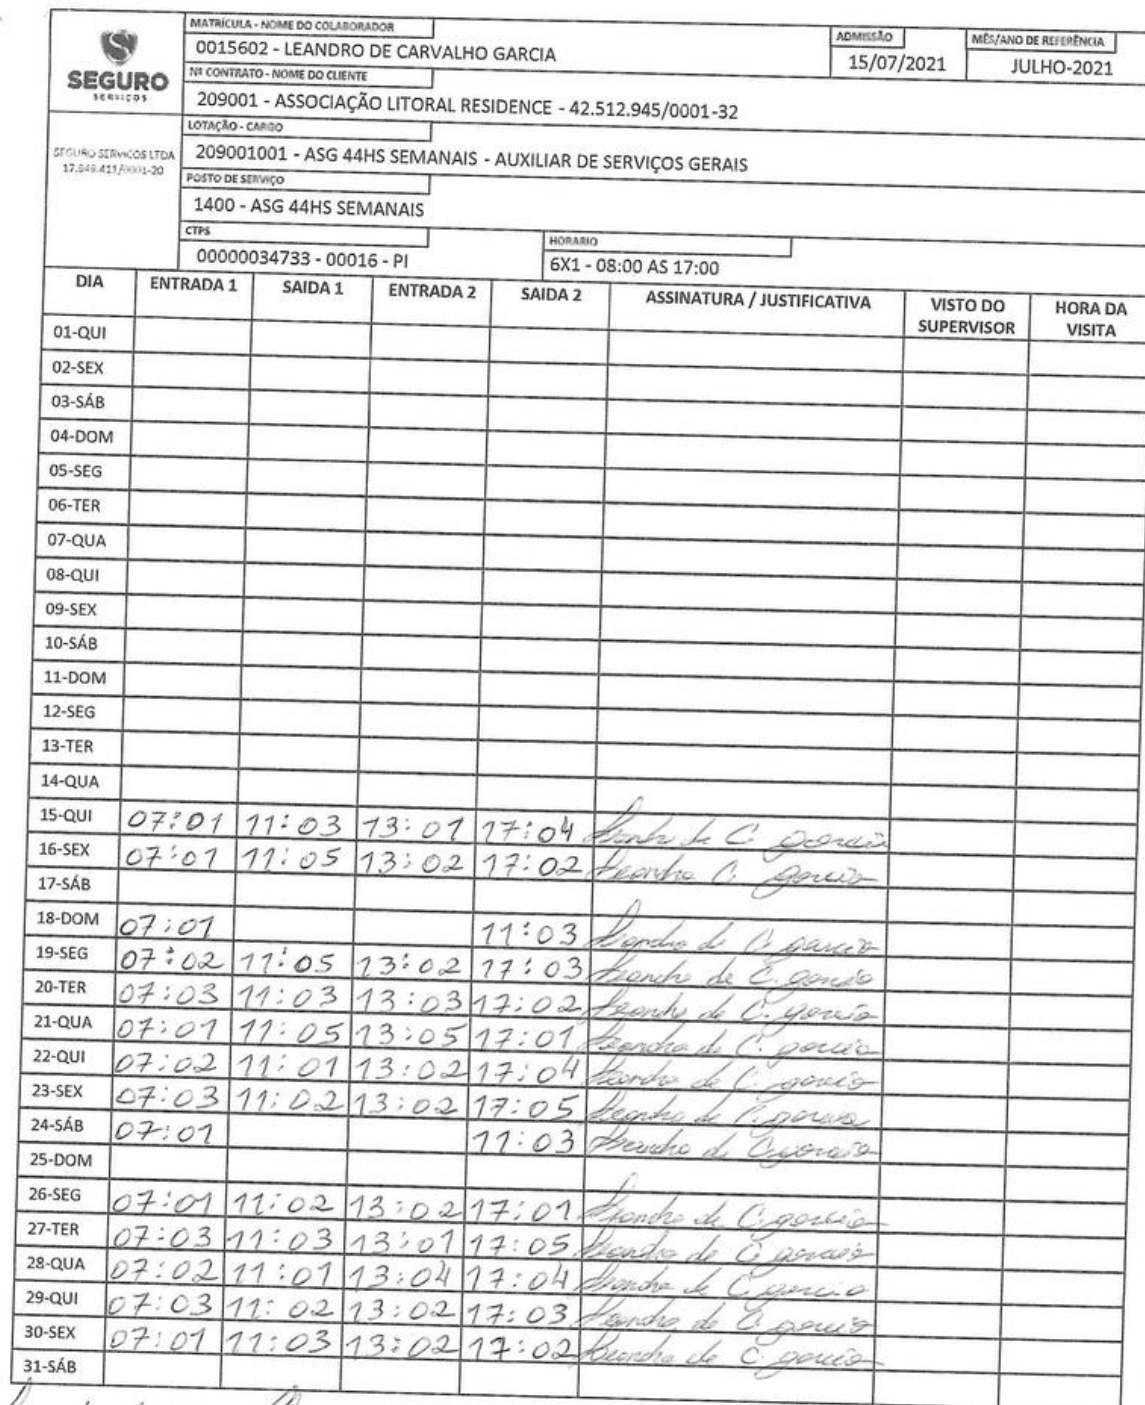 MATRÍCULA - NOME DO COLABORADOR
ADMISSÃO
MÊS/ANO DE REFERÊNCIA
0015602 - LEANDRO DE CARVALHO GARCIA
15/07/2021
JULHO-2021
SEGURO
SERVIÇOS
Nº CONTRATO - NOME DO CLIENTE
209001 - ASSOCIAÇÃO LITORAL RESIDENCE - 42.512.945/0001-32
LOTAÇÃO - CARGO
SEGURO SERVICOS LTDA
17.949.411/0001-20
209001001 - ASG 44HS SEMANAIS - AUXILIAR DE SERVIÇOS GERAIS
POSTO DE SERVIÇO
1400 - ASG 44HS SEMANAIS
CTPS
HORARIO
00000034733 - 00016 - PI
6X1 - 08:00 AS 17:00
DIA ENTRADA 1 SAIDA 1 ENTRADA 2 SAIDA 2 ASSINATURA / JUSTIFICATIVA VISTO DO SUPERVISOR HORA DA VISITA
01-QUI
02-SEX
03-SÁB
04-DOM
05-SEG
06-TER
07-QUA
08-QUI
09-SEX
10-SÁB
11-DOM
12-SEG
13-TER
14-QUA
15-QUI 07:01 11:03 13:01 17:04 Leandro de C garcia
16-SEX 07:01 11:05 13:02 17:02 Leandro C. garcia
17-SÁB
18-DOM 07:01 11:03 Leandro de C garcia
19-SEG 07:02 11:05 13:02 17:03 Leandro de C. garcia
20-TER 07:03 11:03 13:03 17:02 Leandro de C. garcia
21-QUA 07:01 11:05 13:05 17:01 Leandro de C. garcia
22-QUI 07:02 11:01 13:02 17:04 Leandro de C. garcia
23-SEX 07:03 11:02 13:02 17:05 Leandro de C. garcia
24-SÁB 07:01 11:03 Leandro de C. garcia
25-DOM
26-SEG 07:01 11:02 13:02 17:01 Leandro de C. garcia
27-TER 07:03 11:03 13:01 17:05 Leandro de C. garcia
28-QUA 07:02 11:01 13:04 17:04 Leandro de C. garcia
29-QUI 07:03 11:02 13:02 17:03 Leandro de C. garcia
30-SEX 07:01 11:03 13:02 17:02 Leandro de C. garcia
31-SÁB